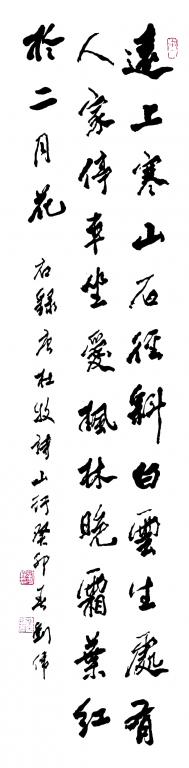 遠上寒山石徑斜白雲生處有
人家停車坐愛楓林晚霜葉紅
於二月花
右錄唐杜牧詩山行癸卯春劉偉